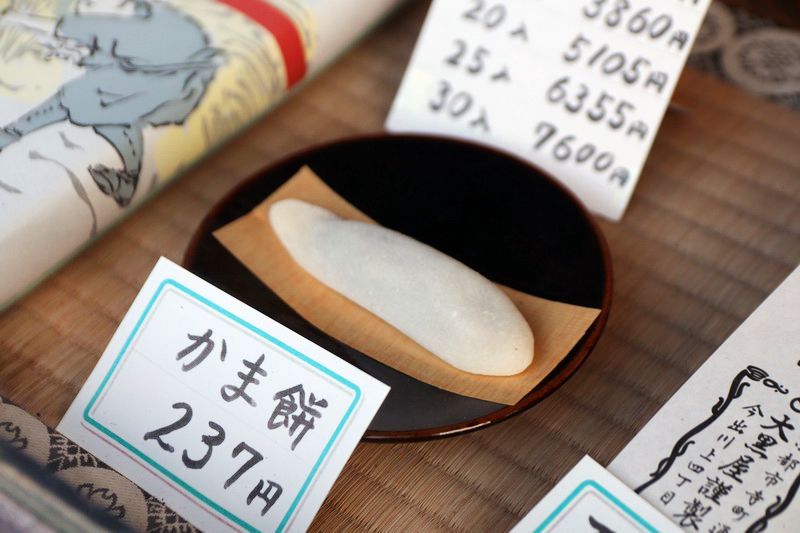 20入 3860円
25入 5105円
30入 6355円
7600円
かま餅
237円
都市寺町通
今出川上四丁目
大黒屋謹製